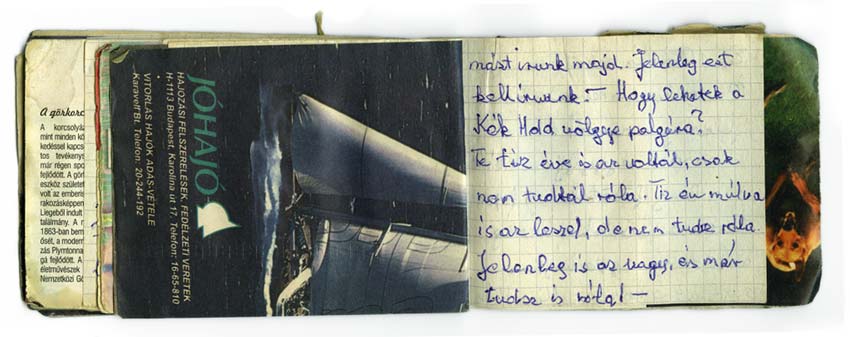 A görkorc
A korcsolyá
mint minden kö
kedéssel kapcs
tos tevékenys
már régen spo
fejlődött. A gör
eszköz születet
volt az emberis
rakozásképpen
Liegeből indult
találmány. A r
1863-ban bem
ősét, a modern
zás Plymtonna
gá fejlődött. A
életművészek
Nemzetközi Gö
JÓHAJÓ
HAJÓZÁSI FELSZERELÉSEK, FEDÉLZETI VERETEK
H-1113 Budapest, Karolina út 17. Telefon: 16-65-810
VITORLÁS HAJÓK ADÁS-VÉTELE
Karavell Bt. Telefon: 20-244-192
mást írunk majd. Jelenleg ezt
kell írnunk: – Hogy lehetek a
Kék Hold völgye polgára?
Te tíz éve is az voltál, csak
nem tudtál róla. Tíz év múlva
is az leszel, de nem tudsz róla.
Jelenleg is az vagy, és már
tudsz is róla! –